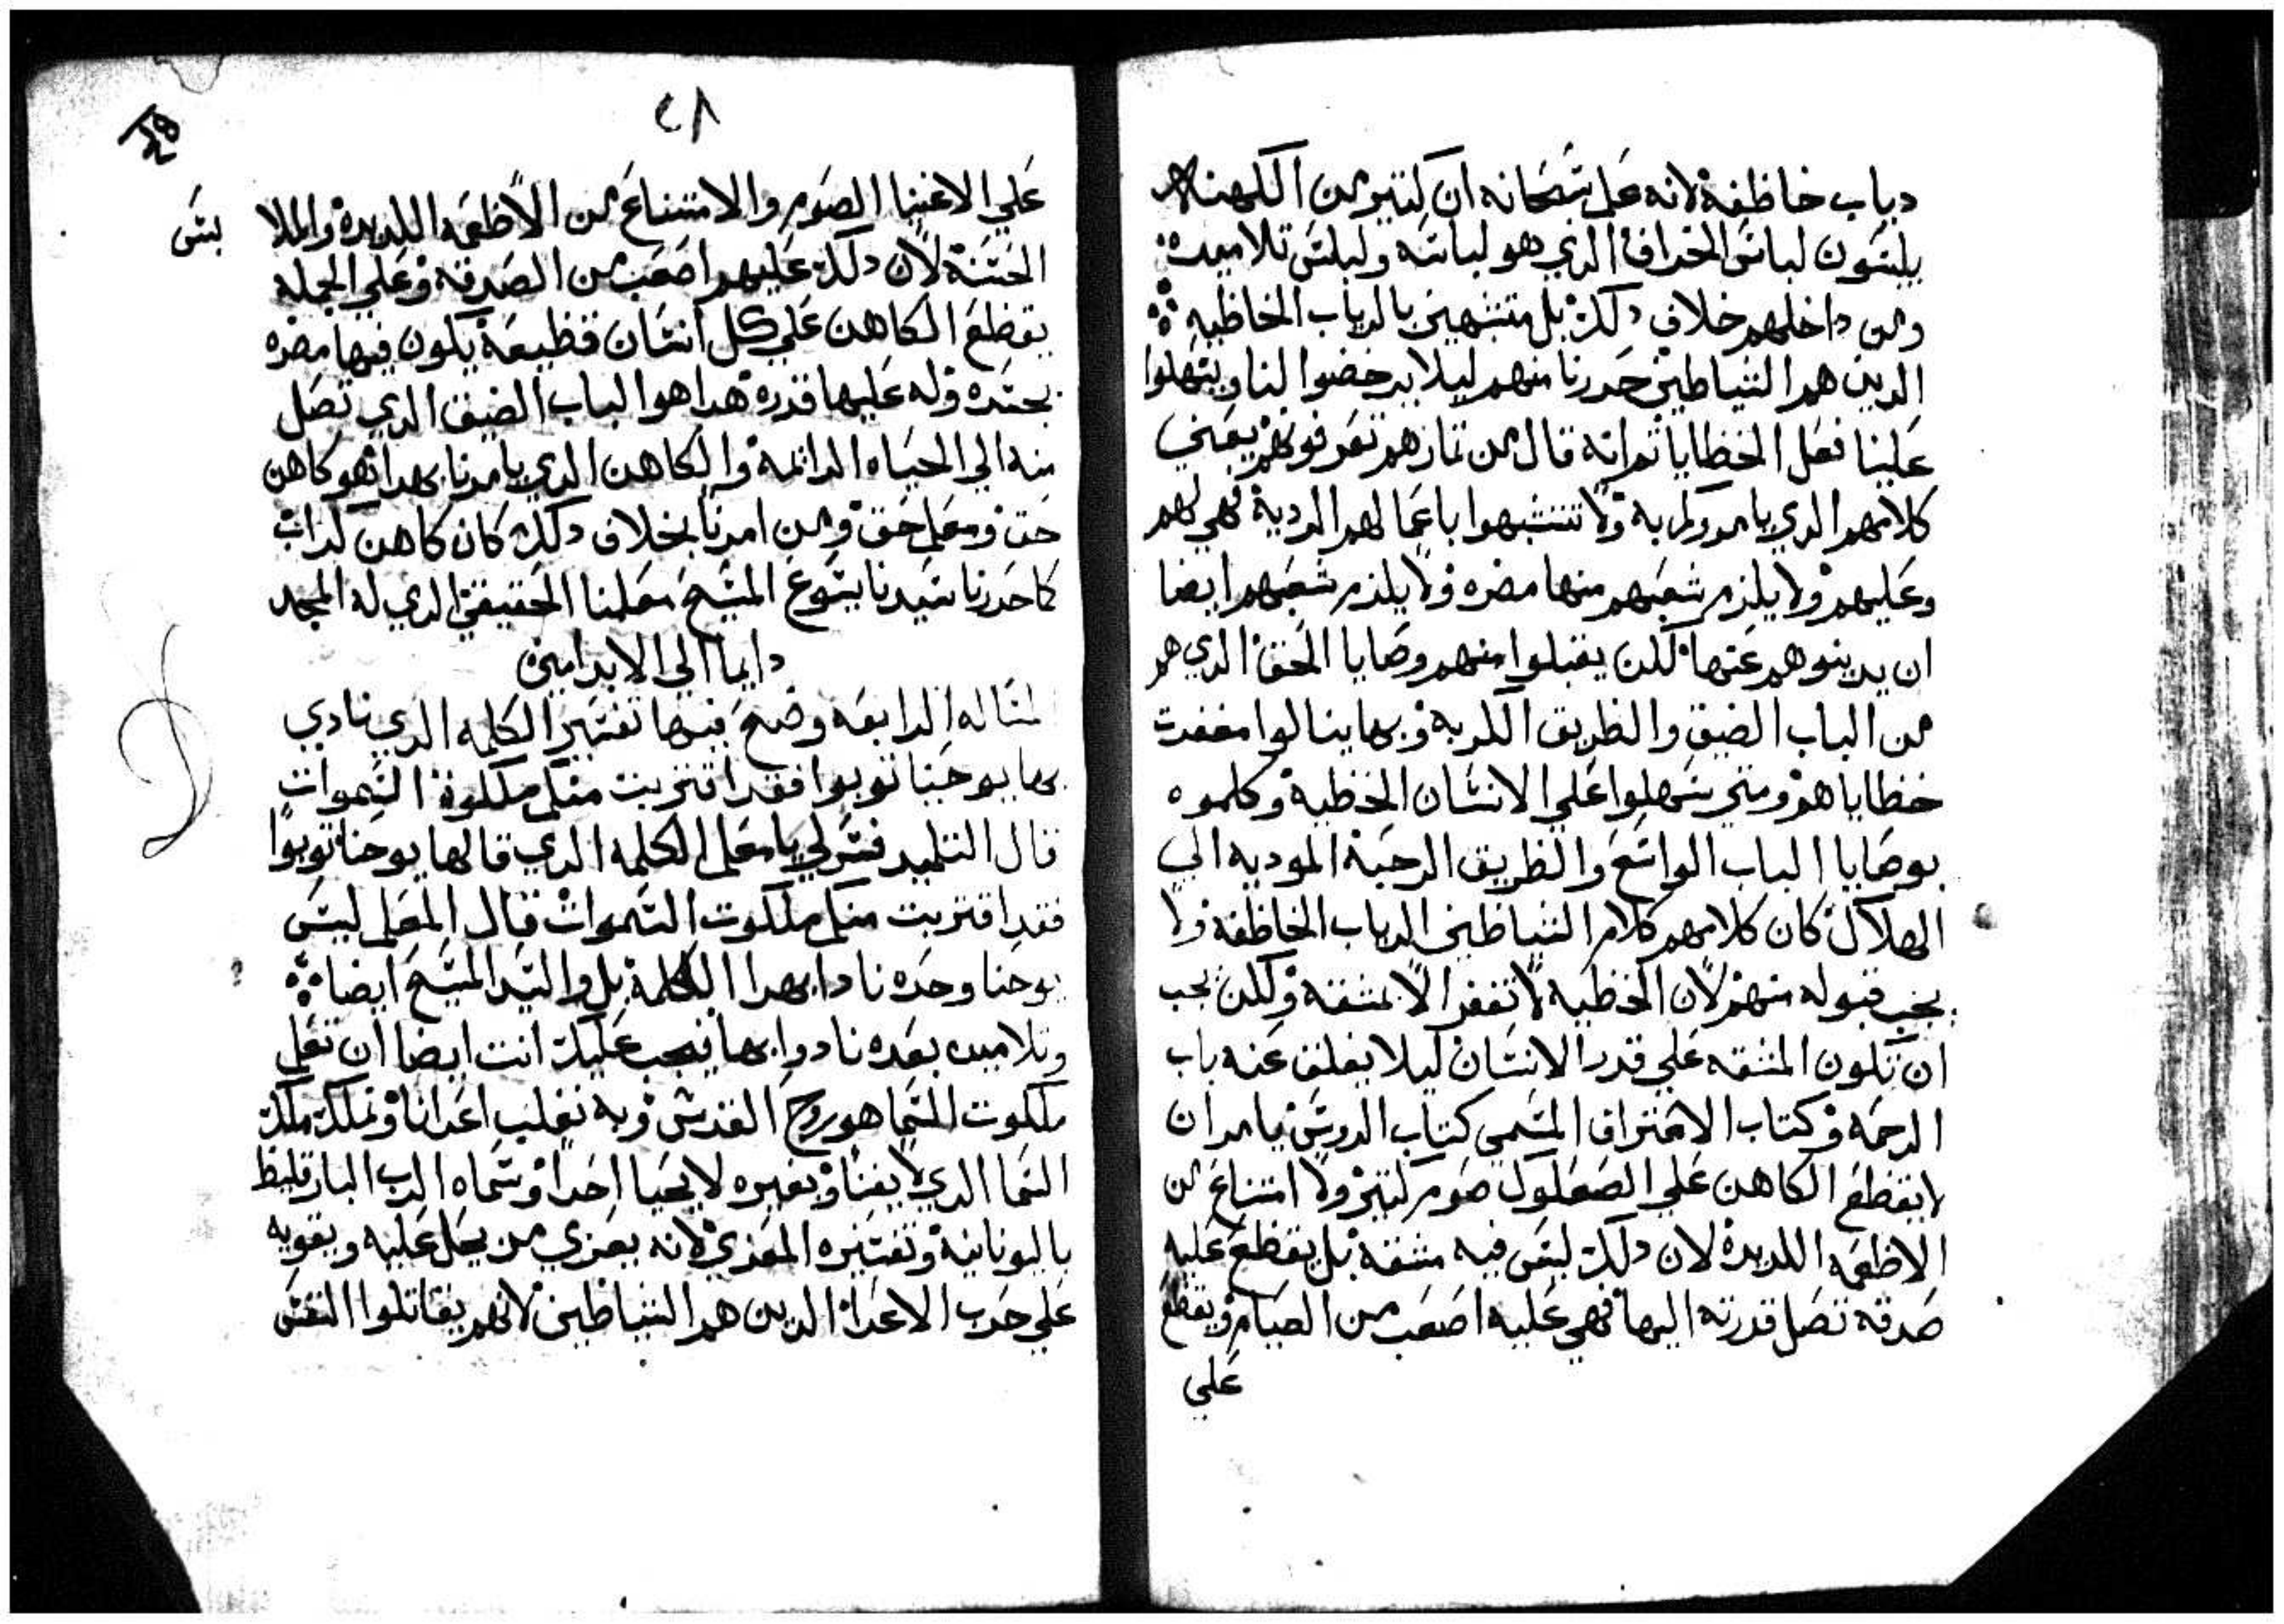 دياب خاظفة لانه علم سبحانه ان كتير من الكهنه
يلبسون لباس الخراف الدي هو لباسه ولباس تلاميده
ومن داخلهم خلاف دلك بل متشبهين بالدياب الخاظيه
الدين هم الشياطين حدرنا منهم ليلا يرخضوا لنا ويسهلوا
علينا فعل الخظايا ثم انه قال من تمارهم تعرفوهم يعني
كلامهم الدي يامروكم به ولا تتشبهوا باعمالهم الردية فهي لهم
وعليهم ولا يلزم شعبهم منها مضره ولا يلزم شعبهم ايضا
ان يدينوهم عنها لكن يقبلوا منهم وصايا الحق الدي هو
من الباب الضيق والظريق الكربة وبها ينالوا مغفرت
خظاياهم ومتي سهلوا علي الانسان الخظية وكلموه
بوصايا الباب الواسع والظريق الرحبة الموديه الي
الهلاك كان كلامهم كلام الشياظين الدياب الخاظفة ولا
يجب قبوله منهم لان الخظيه لا تغفر الا بمشقة ولكن يجب
ان تكون المشقه علي قدر الانسان ليلا يغلق عنه باب
الرحمه وكتاب الاعتراف المسمي كتاب الروس يامر ان
لا يقظع الكاهن علي الصعلوك صوم كتير ولا امتناع من
الاظعمه اللديدة لان دلك ليس فيه مشقة بل يقظع عليه
صدقة تصل قدرته اليها فهي عليه اصعب من الصيام ويقظع
علي
٢٨
28
علي الاغنيا الصوم والامتناع من الاظعمه اللديدة والملا
بس
الحسنة لان دلك عليهم اصعب من الصدقه وعلي الجمله
يقظع الكاهن علي كل انسان قظيعة يكون فيها مضره
بجسده وله عليها قدره هدا هو الباب الضيق الدي تصل
منه الي الحياه الدائمة والكاهن الدي يامرنا بهدا فهو كاهن
حق ومعلم حق ومن امرنا بخلاف دلك كان كاهن كداب
كما حدرنا سيدنا يسوع المسيح معلمنا الحقيقي الدي له المجد
دايما الي الابد امين
المقاله الرابعه وضح فيها تفسير الكلمه الدي نادي
بها يوحنا توبوا فقد اقتربت منكم ملكوة السموات
قال التلميد فسر لي يا معلم الكلمه الدي قالها يوحنا توبوا
فقد اقتربت منكم ملكوت السموات قال المعلم ليس
يوحنا وحده نادا بهدا الكلمة بل والسيد المسيح ايضا
وتلاميده بعده نادوا بها فيجب عليك انت ايضا ان تعلم
ملكوت السما هو روح القدس وبه نغلب اعدانا ونملك ملك
السما الدي لا يفنا وبغيره لا يحيا احدا وسماه الرب البارقليظ
باليونانية وتفسيره المعزي لانه يعزي من يحل عليه ويقويه
علي حرب الاعدا الدين هم الشياظين لانهم يقاتلوا النفس